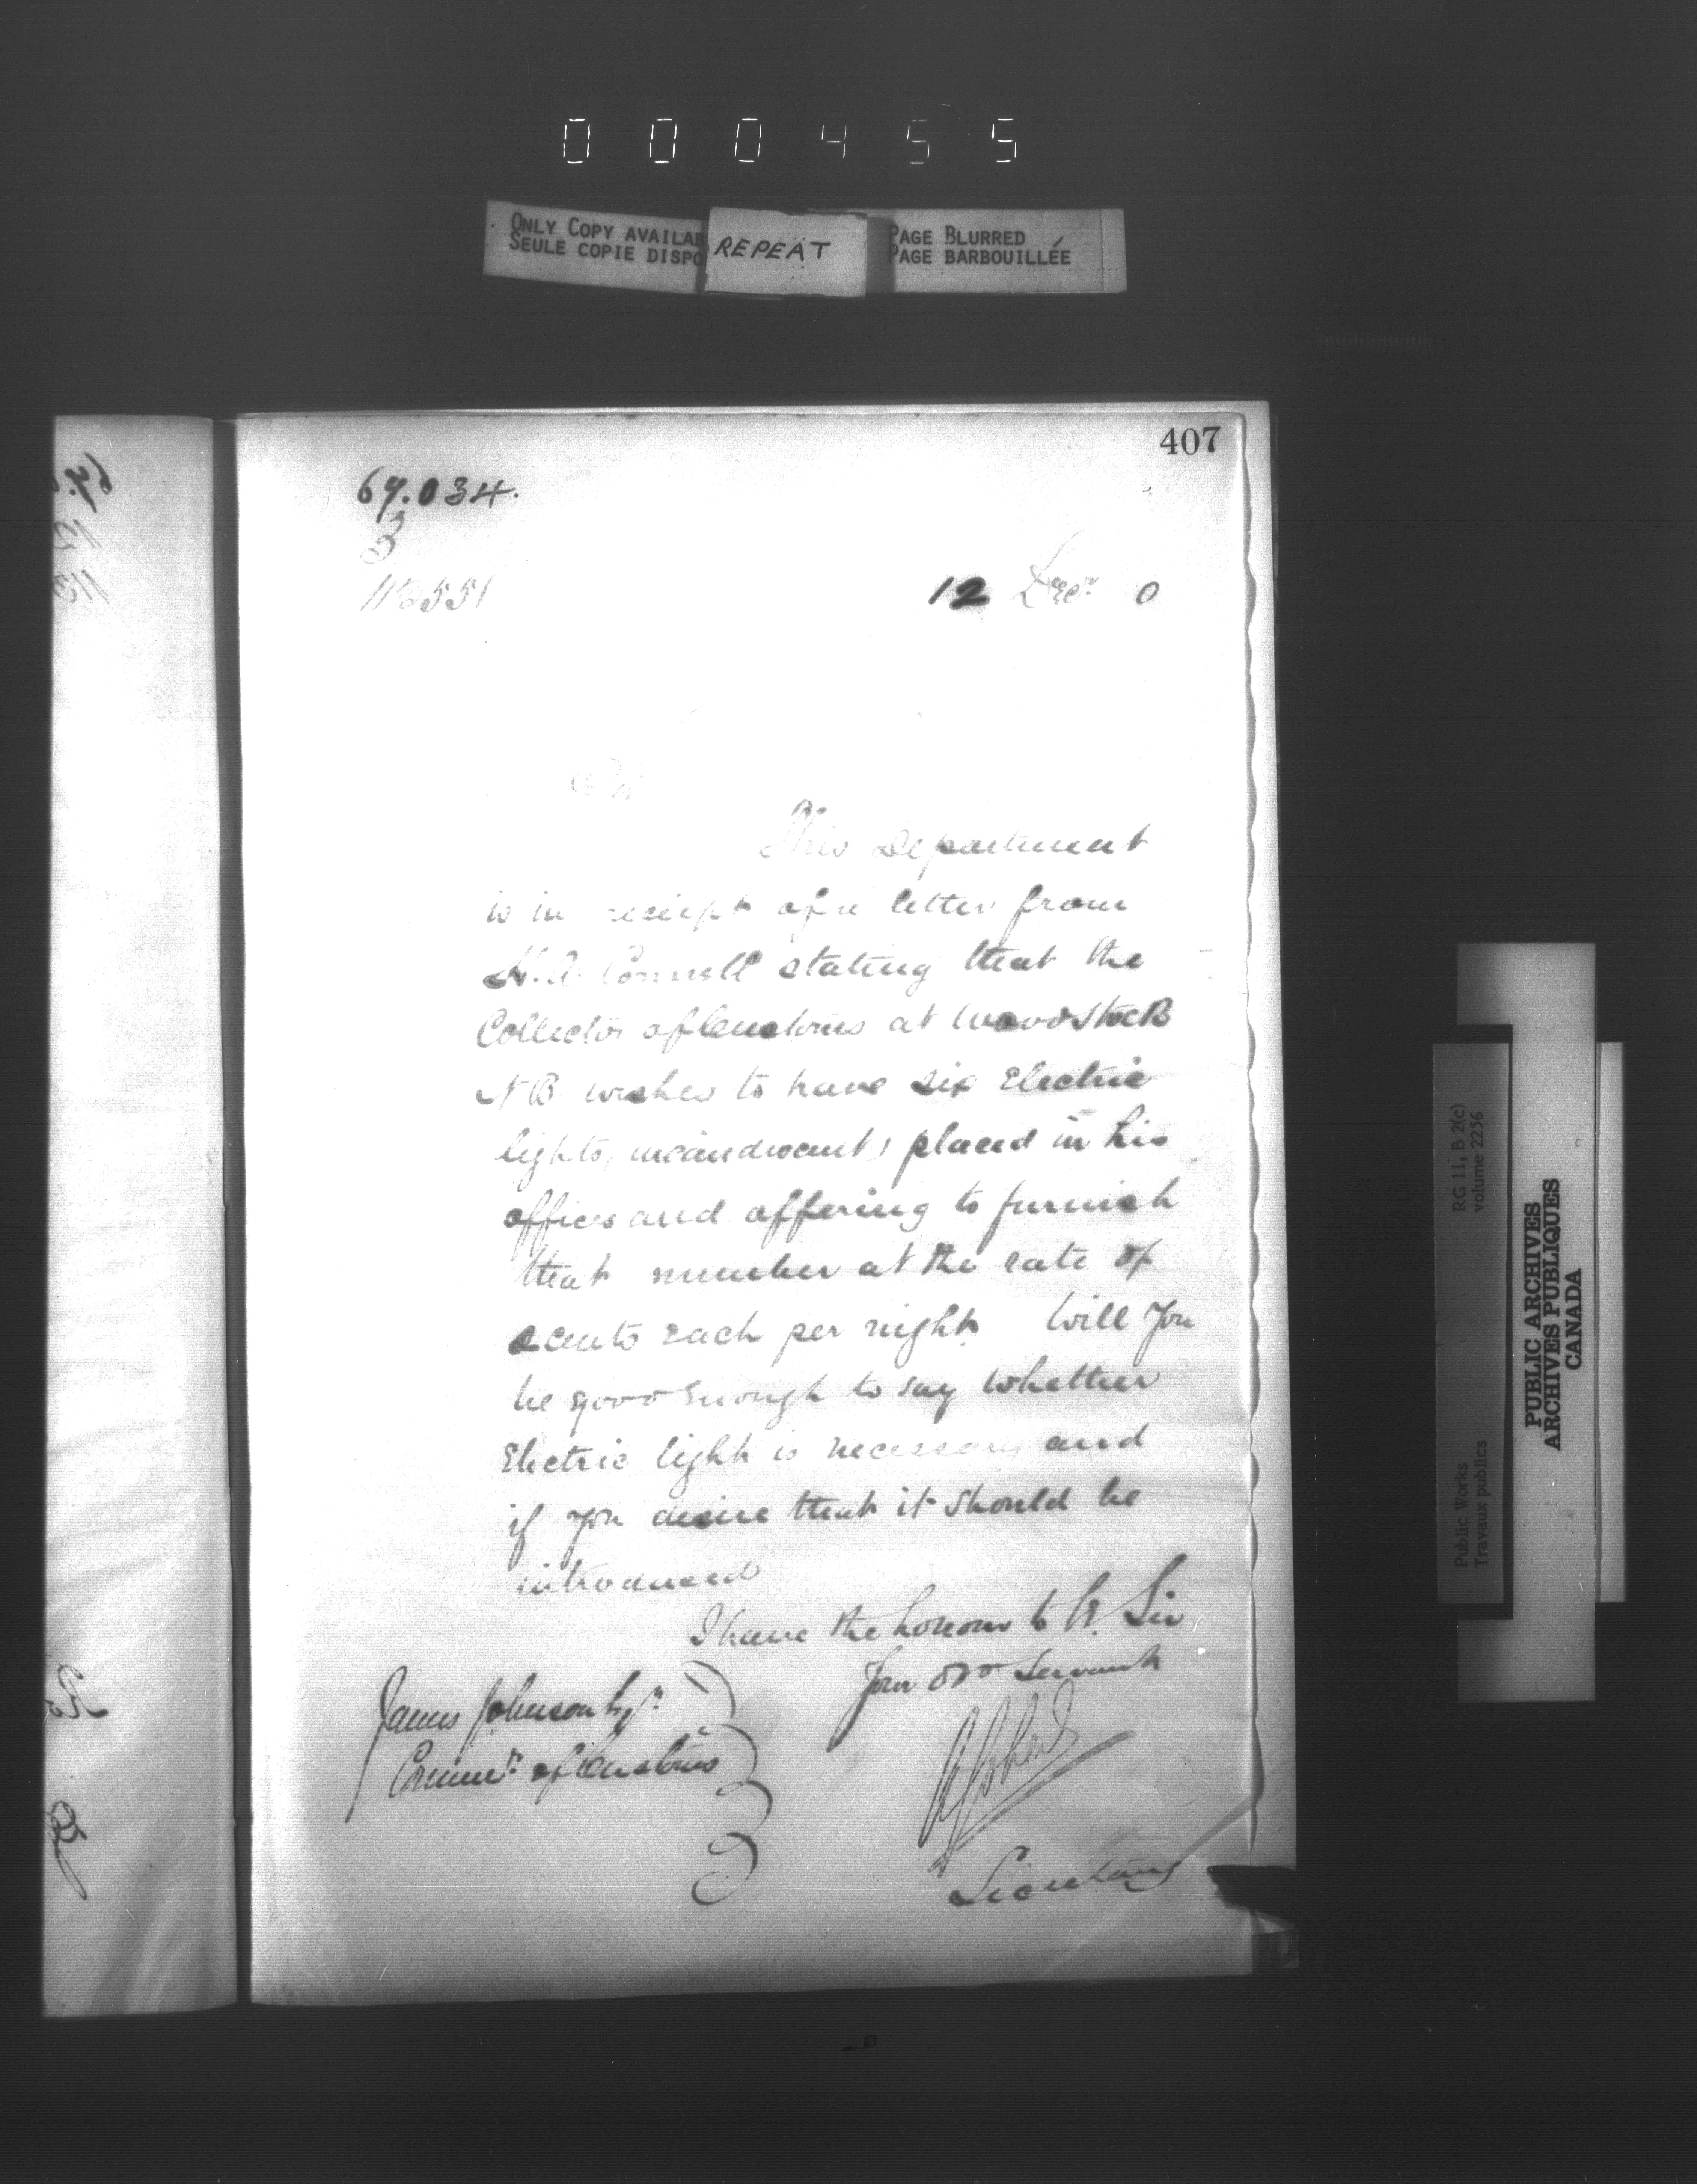 000455
ONLY COPY AVAILAB
SEULE COPIE DISPO
REPEAT
PAGE BLURRED
PAGE BARBOUILLÉE
407
67.034.
3
12 Decr 0
This Department
is in reciept of a letter from
H.A. Connell stating that the
Collector of Customs at Woodstock
N B wishes to have six Electric
lights, incandescent, placed in his
offices and offering to furnish
that number at the rate of
cents each per night Will you
be good Enough to say whether
Electric light is necessary and
if you desire that it should be
introduced
I have the honour to be. Sir
Your Obt Servant
James Johnson Esqr.
Commr. of Customs
Secretary
RG 11, B 2(c)
volume 2256
Public Works
Travaux publics
PUBLIC ARCHIVES
ARCHIVES PUBLIQUES
CANADA